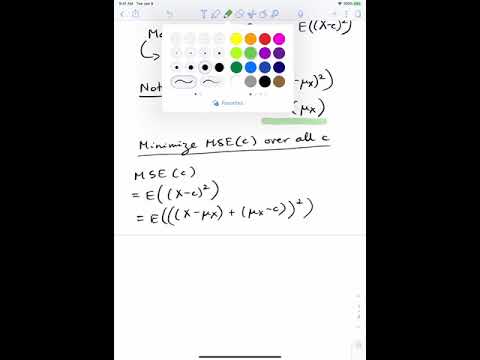 9:41 AM Tue Jan 9
100%
E((X-c)²)
μx)²)
(μx)
Favorites
Minimize MSE(c) over all c
MSE(c)
= E((X-c)²)
= E(((X-μx) + (μx-c))²)